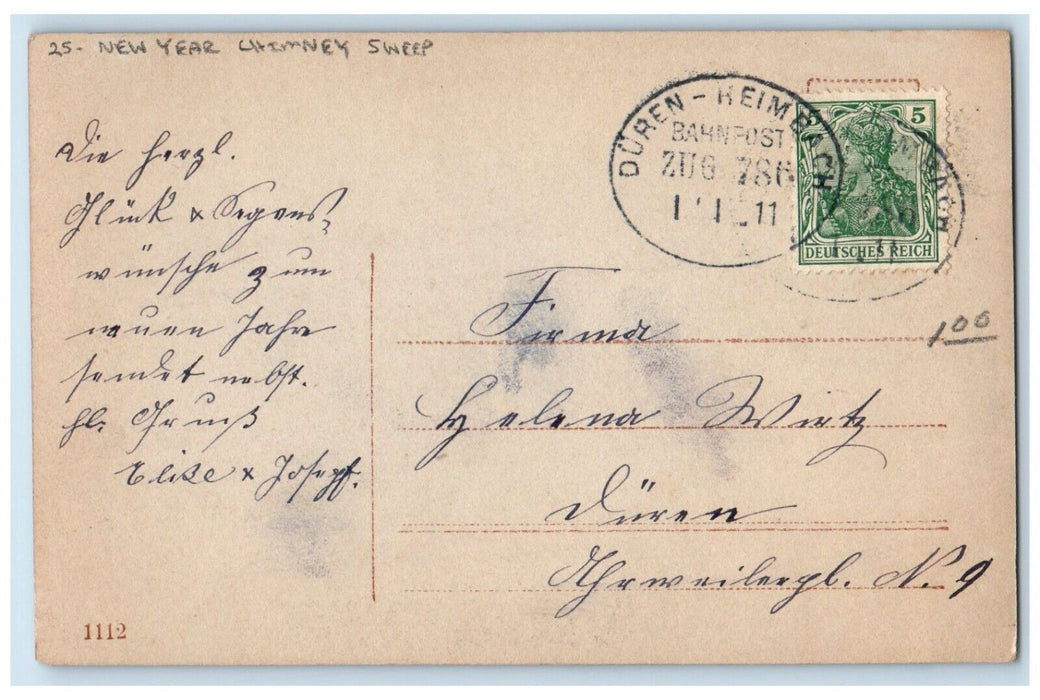 25- NEW YEAR CHIMNEY SWEEP
Die herzl.
Glück & Segens-
wünsche zum
neuen Jahre
sendet nebst.
hl. Gruß
Elise & Josepf.
DÜREN - HEIMBACH
BAHNPOST
ZUG 786
11
5
DEUTSCHES REICH
1.00
Firma
Helena Wirtz
Düren
Ahrweilerpl. N. 9
1112